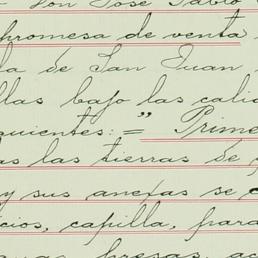 Don José Pablo
promesa de venta
la de San Juan
llas bajo las cali
guientes: = " Prime
as las tierras de
y sus anexas se
cios, capilla, para
guas, presas, ac